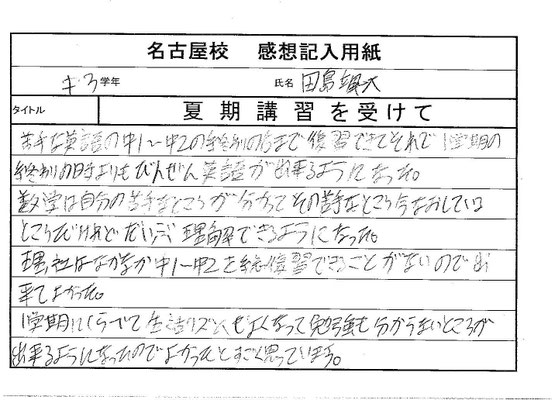 名古屋校 感想記入用紙
中3 学年 氏名 田島颯大
タイトル 夏期講習を受けて
苦手な英語の中1〜中2の終わりの方まで復習できてそれで1学期の
終わりの時よりもぜんぜん英語が出来るようになった。
数学は自分の苦手なところが分かってその苦手なところ今なおしている
ところだけれどだいぶ理解できるようになった。
理,社はなかなか中1〜中2を総復習できることがないので出
来てよかった。
1学期にくらべて生活リズムもよくなって勉強も分からないところが
出来るようになったのでよかったとすごく思っています。